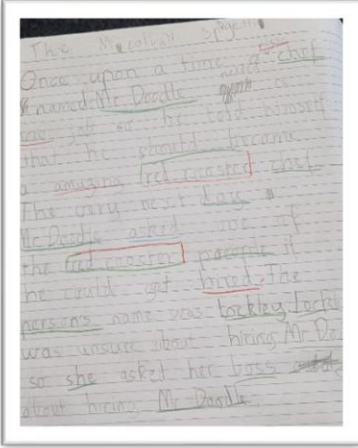 The Spagetti
Once upon a time chef
named Mr Doodle need a
new job so he told himself
that he should became
a amazing red rooster chef.
The very next day
Mr Doodle asked one of
the red rooster people if
he could get hired. The
persons name was Lockley. Lockl
was unsure about hiring Mr Do
so she asked her boss
about hiring Mr Doodle.